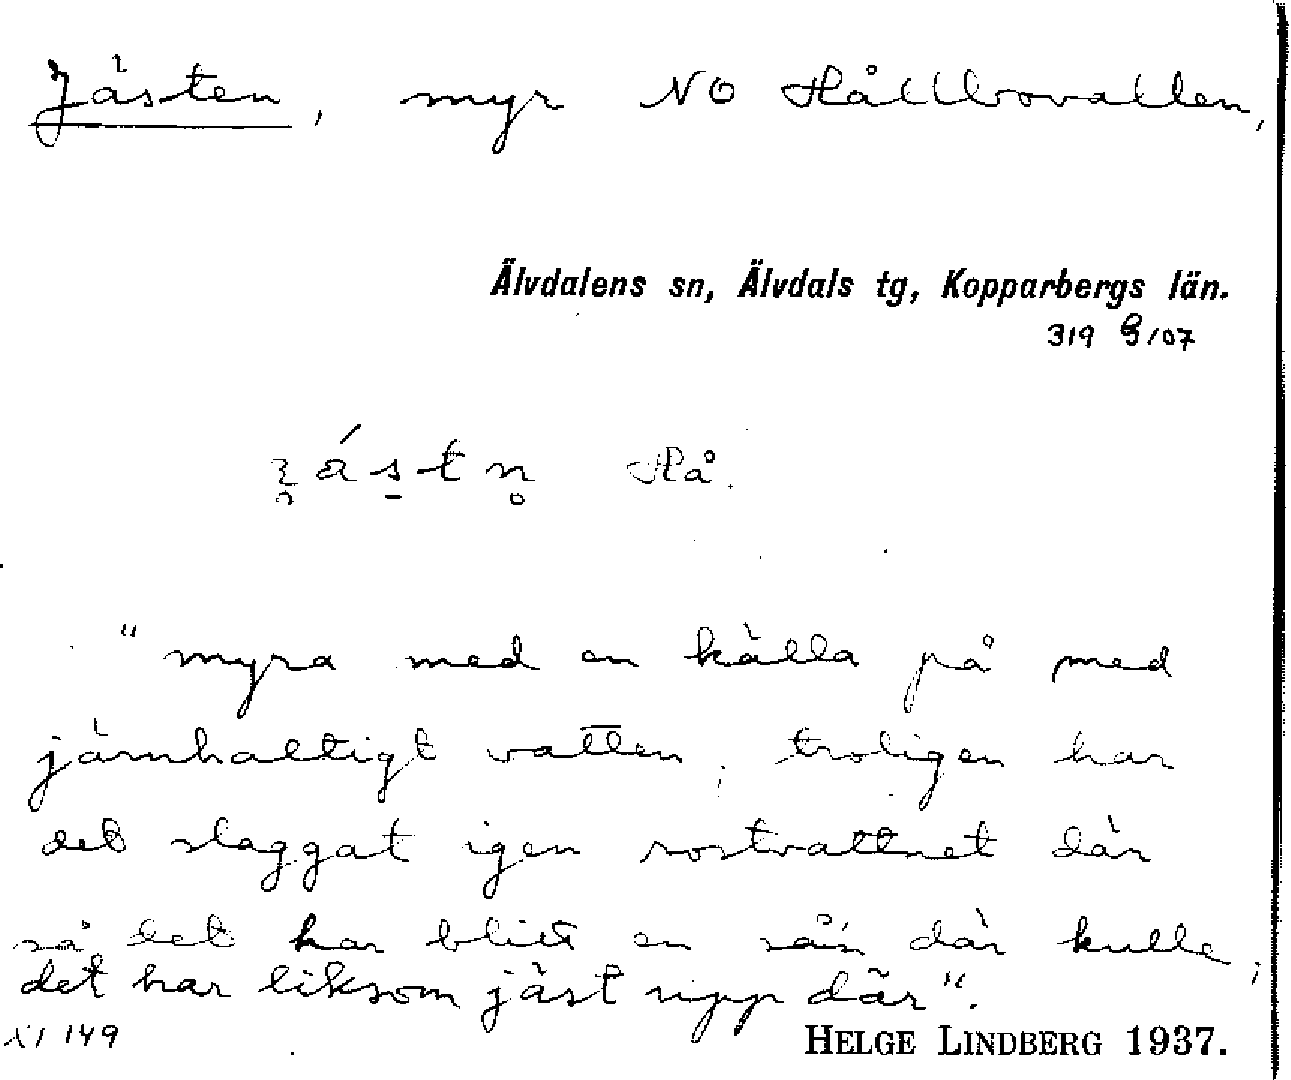 Jästen, myr NO Hållbovallen,
Älvdalens sn, Älvdals tg, Kopparbergs län.
319 /07
Hå.
"myra med en källa på med
järnhaltigt vatten, troligen har
det slaggat igen rostvattnet där
så det har blitt en så'n där kulle,
det har liksom jäst upp där".
XI 149
HELGE LINDBERG 1937.